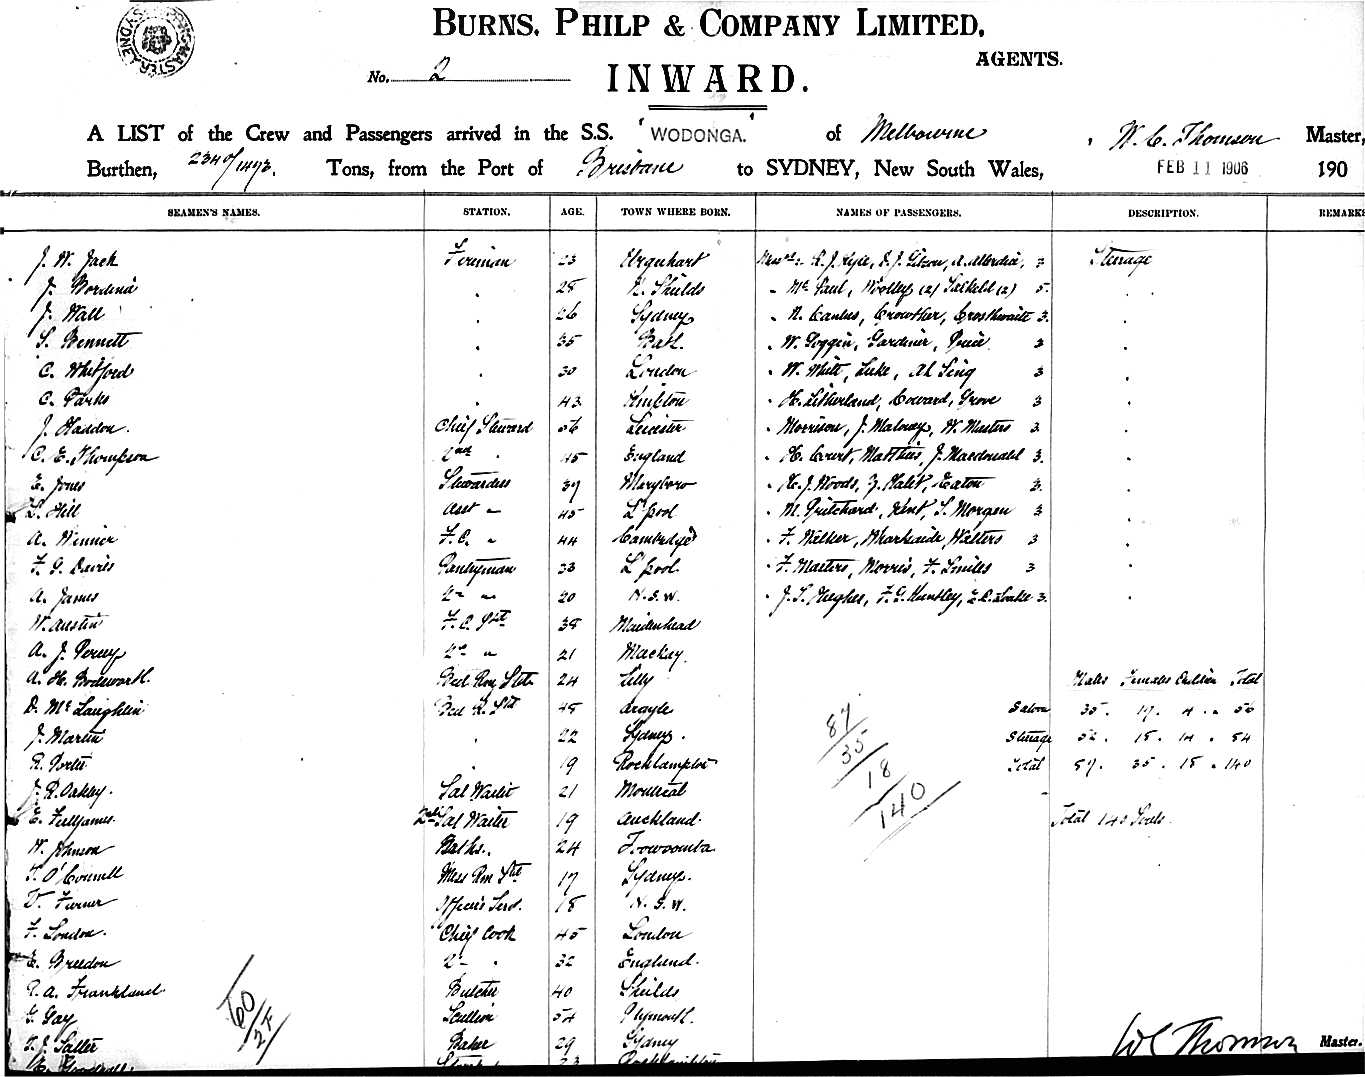 SHIPPING MASTER SYDNEY
BURNS, PHILP & COMPANY LIMITED,
AGENTS.
No. 2
INWARD.
A LIST of the Crew and Passengers arrived in the S.S. "WODONGA." of Melbourne, W. C. Thomson Master,
Burthen, 2340/1493. Tons, from the Port of Brisbane to SYDNEY, New South Wales, FEB 11 1906 190
SEAMEN'S NAMES. STATION. AGE. TOWN WHERE BORN. NAMES OF PASSENGERS. DESCRIPTION. REMARKS
J. W. Jack Fireman 23 Urquhart 3 Steerage
J. 28 N. Shields Mc Paul, Woolley (2) Salkeld (2) 5
J. Wall 26 Sydney Crowther, Crosthwaite 3
S. Bennett 35 W. Goggin, Gardiner, 3
C. Whitford 30 London W. White, Luke, Ah Sing 3
C. Parks 43 H. Litherland, Coward, Grove 3
J. Haddon. Chief Steward 56 Leicester Morrison, J. Maloney, W. Masters 3
C. E. Thompson 2nd " 45 England H. Court, Matthies, J. Macdonald 3.
E. Jones Stewardess 37 Maryboro H. J. Woods, Eaton 3.
L. Hill Asst " 45 L'pool M. Pritchard, Kent, S. Morgan 3
A. Winner F.C. " 44 Cambridge F. Walker, Walters 3
F. G. Davies Pantryman 33 L'pool. F. Masters, Morris, F. Smiles 3
A. James 2nd " 20 N.S.W. J. S. Hughes, F. G. Huntley, 3.
W. Austin F.C. 38 Maidenhead
A. J. Percy 2nd " 21 Mackay.
A. H. Bodsworth. Bed Rm Std 24
D. McLaughlin Bed R. Std 48 Argyle
J. Martin 22 Sydney.
R. Porter 19 Rockhampton
J. R. Oakley. Sal Waiter 21 Montreal
E. Sal Waiter 19 Auckland.
W. Johnson Baths. 24 Toowoomba
T. O'Connell Mess Rm Std 17 Sydney.
Turner Officers Serv. 18 N.S.W.
F. London. Chief Cook 45 London
E. Breedon 2nd " 32 England.
A. Frankland Butcher 40 Shields
G. Gay Scullion 54 Plymouth.
J. Salter Baker 29 Sydney
Males Females Children Total
Saloon 35. 17. 4. 56
Steerage 52. 18. 14. 84
Total 87. 35. 18. 140
Total 140 Souls.
87
35
18
140
60
2F
W C Thomson Master.